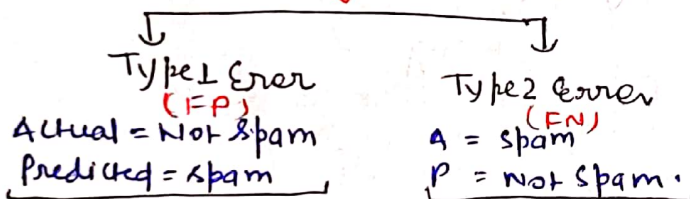 Type 1 Error
(FP)
Actual = Not Spam
Predicted = spam
Type 2 Error
(FN)
A = spam
P = Not Spam.